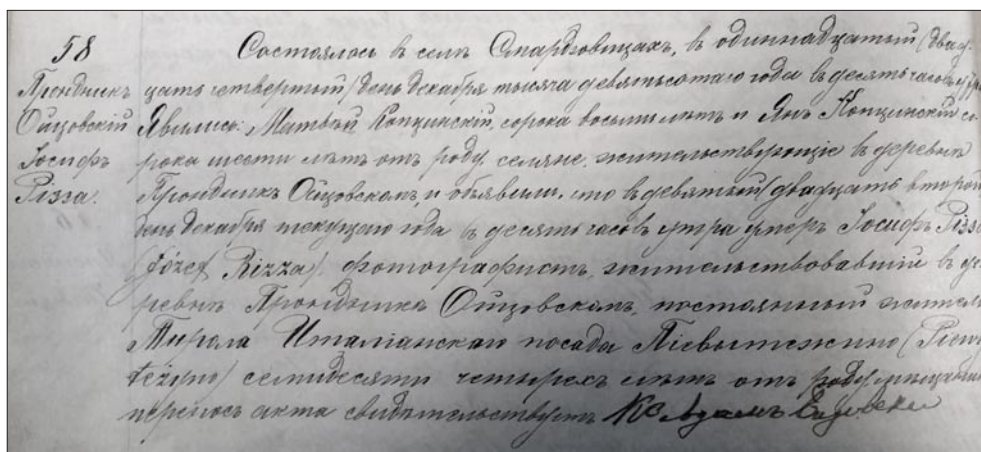 58
Прондникъ
Ойцовскій
Іосифъ
Різза.
Состоялось в селѣ Смардзовицахъ, в одиннадцатый (двад-
цать четвертый) день декабря тысяча девятьсотаго года в десять часовъ утра
Явились: Матвѣй Копцинскій, сорока восьми лѣтъ и Янъ Копцинскій со-
рока шести лѣтъ отъ роду, селяне, жительствующіе в деревнѣ
Прондникъ Ойцовскомъ, и объявили, что в девятый (двадцать второй
день декабря текущаго года в десять часовъ утра умеръ Іосифъ Різза
(Józef Rizza) фотографистъ, жительствовавшій в де-
ревнѣ Прондникъ Ойцовскомъ, постоянный житель
Италіанскаго посада
семидесяти четырехъ лѣтъ отъ роду,
акта свидѣтельствуетъ Кс